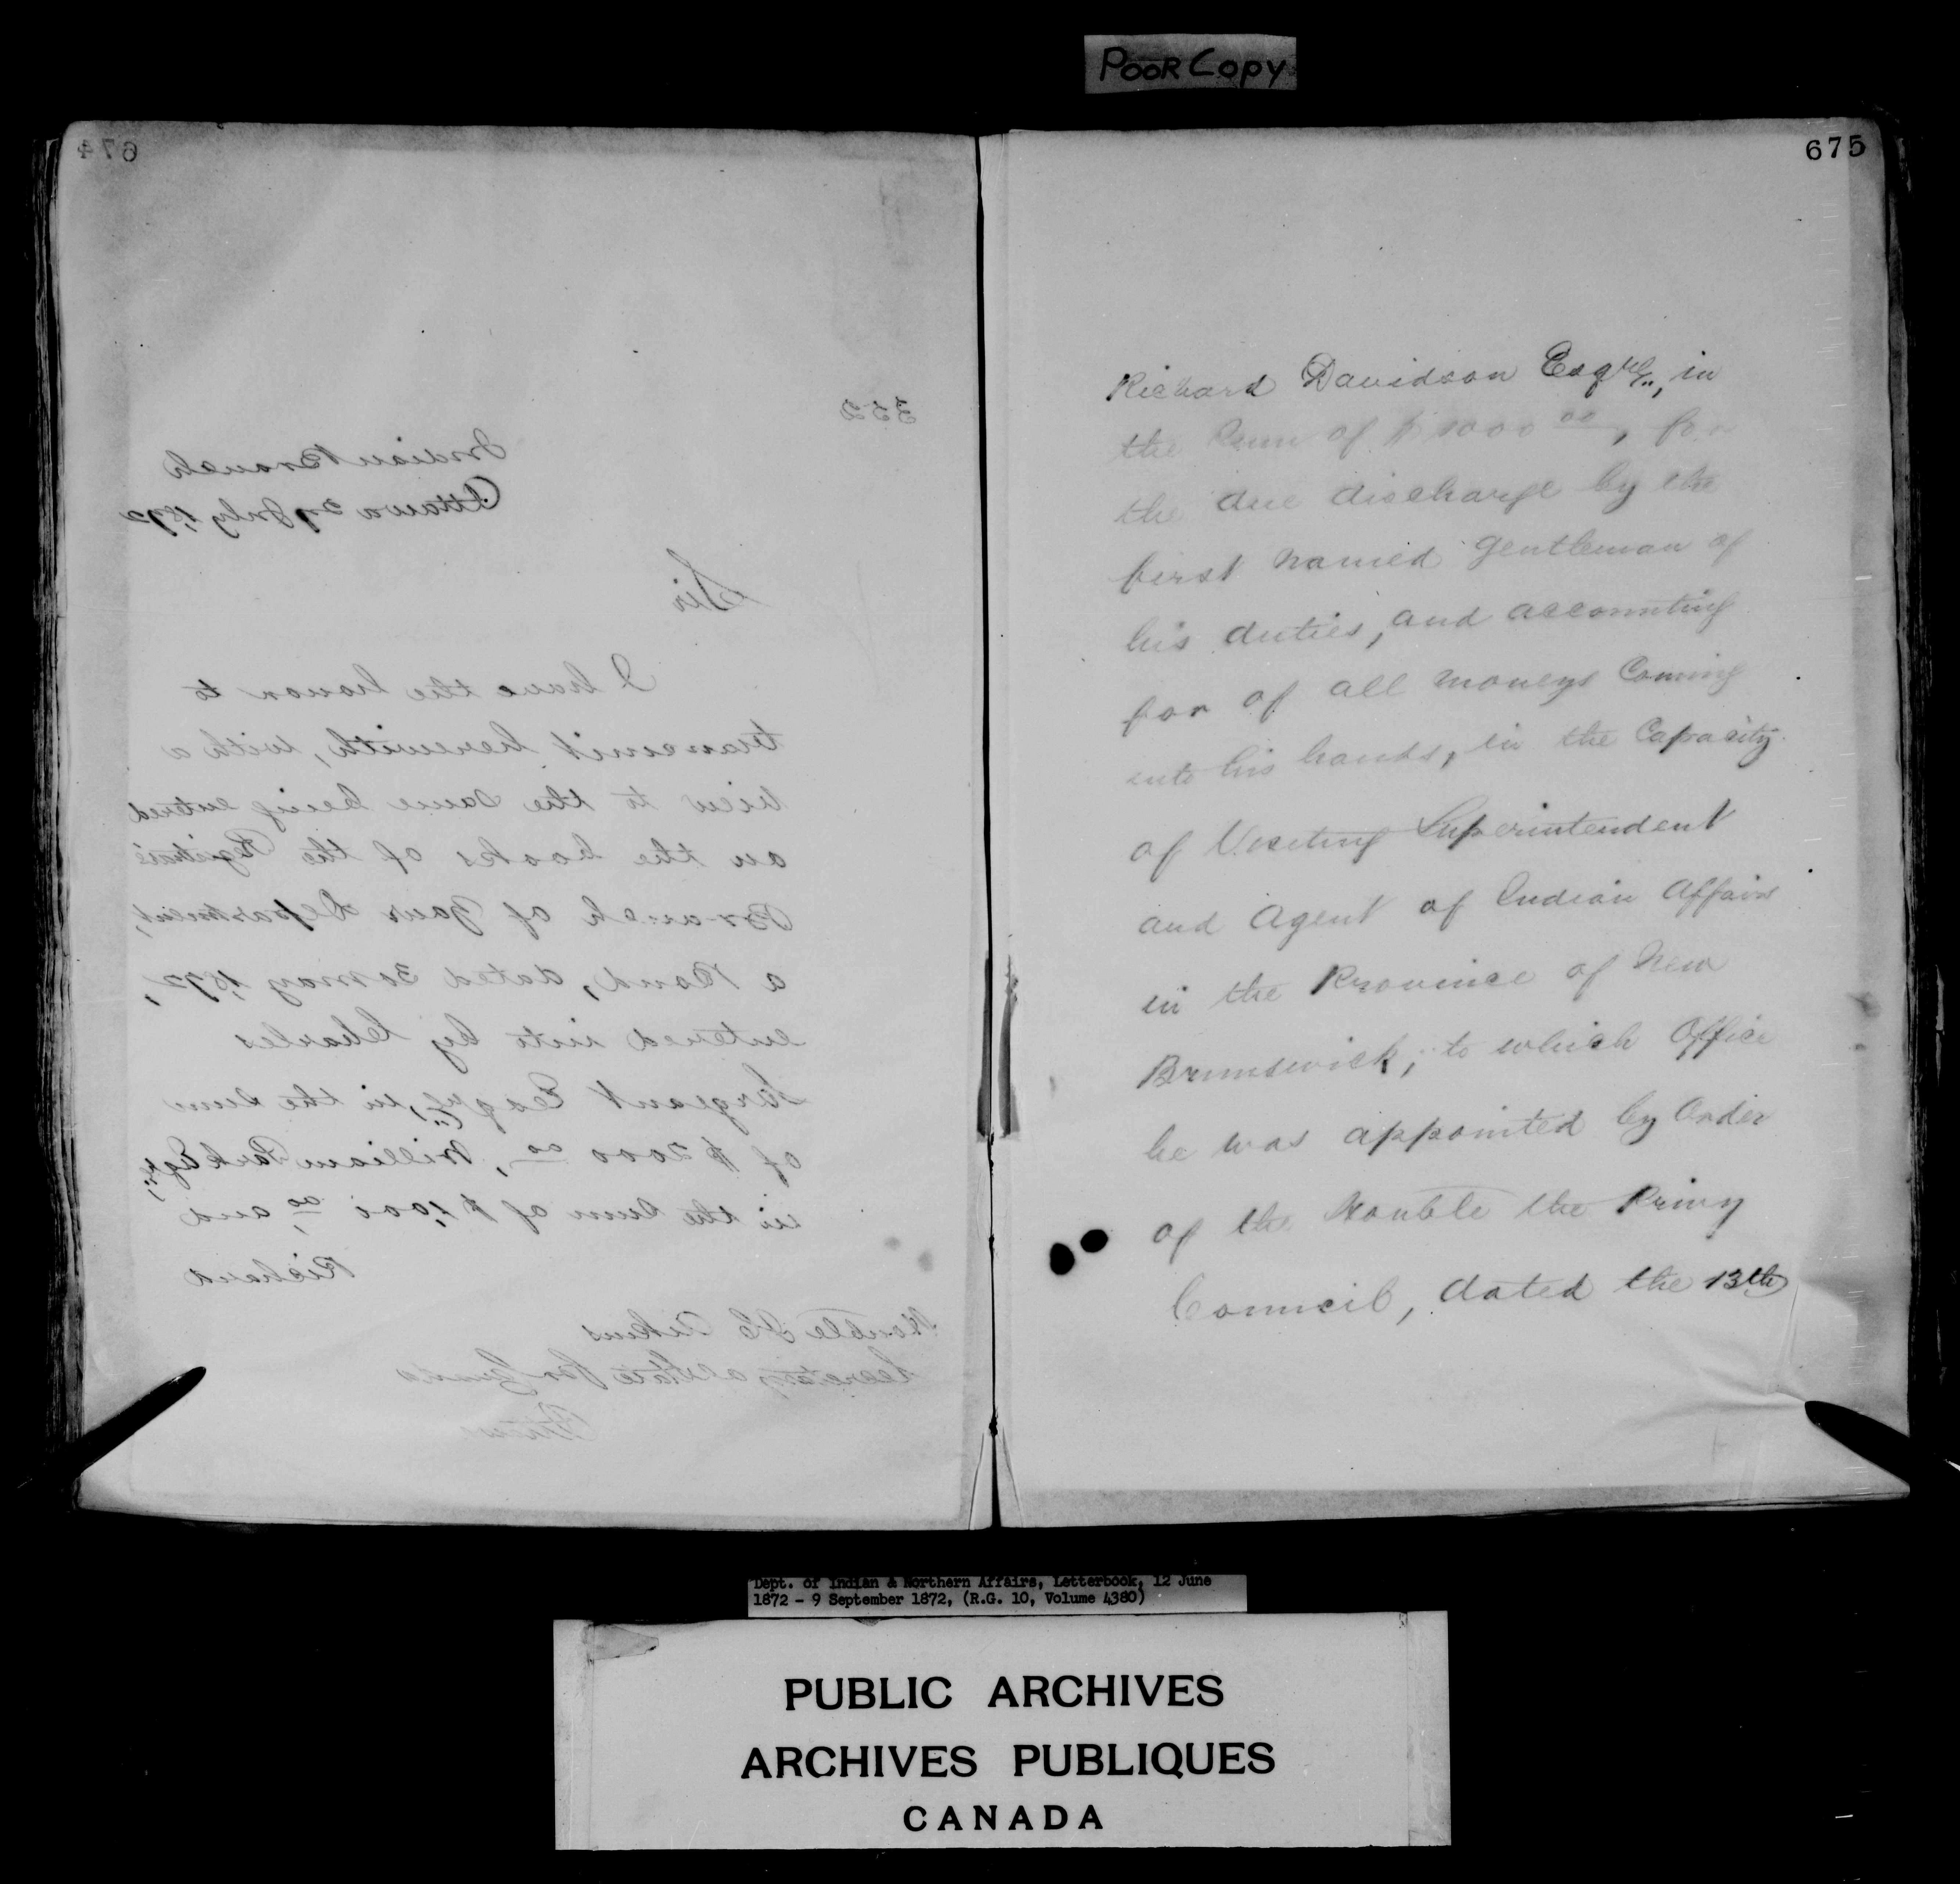 Poor Copy
674
352
Indian Branch
Ottawa 27 July 1872
Sir
I have the honor to
transmit herewith, with a
view to the same being entered
on the books of the
Branch of your Department,
a Bond, dated 30 May 1872,
entered into by Charles
Sargeant Esqre, in the sum
of $2000 00, William Park Esqre,
in the sum of $1,000 00, and
Richard
Honble J C Aikins
Secretary of State for Canada
Ottawa
675
Richard Davidson Esqre, in
the sum of $1000 00, for
the due discharge by the
first named gentleman of
his duties, and accounting
for of all moneys coming
into his hands, in the Capacity
of Visiting Superintendent
and Agent of Indian Affairs
in the Province of New
Brunswick; to which Office
he was appointed by Order
of the Honble the Privy
Council, dated the 13th
Dept. of Indian & Northern Affairs, Letterbook, 12 June
1872 - 9 September 1872, (R.G. 10, Volume 4380)
PUBLIC ARCHIVES
ARCHIVES PUBLIQUES
CANADA